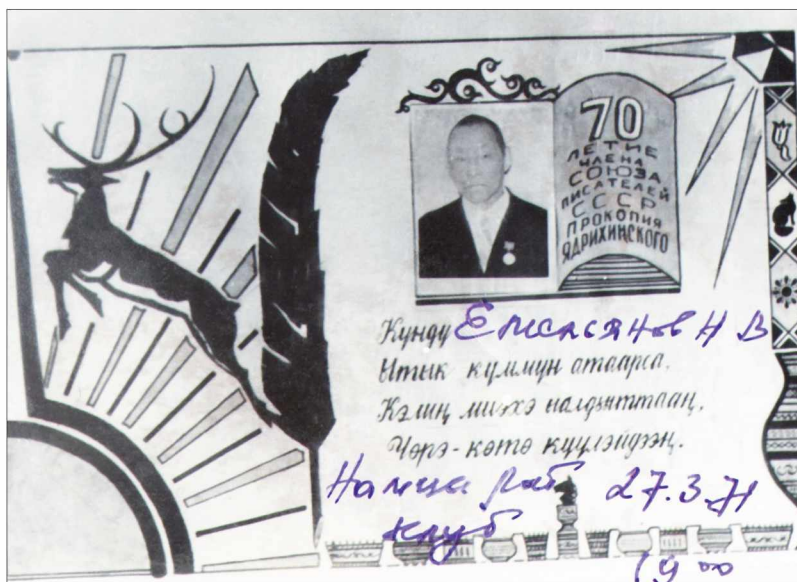 70
ЛЕТИЕ
ЧЛЕНА
СОЮЗА
ПИСАТЕЛЕЙ
СССР
ПРОКОПИЯ
ЯДРИХИНСКОГО
Күндү Емельянов Н В
Ытык күммүн атаарса,
Кэлиң миэхэ налдьыттааң,
Чөрө-көтө күүлэйдээң.
27.3.71
клуб
19 00